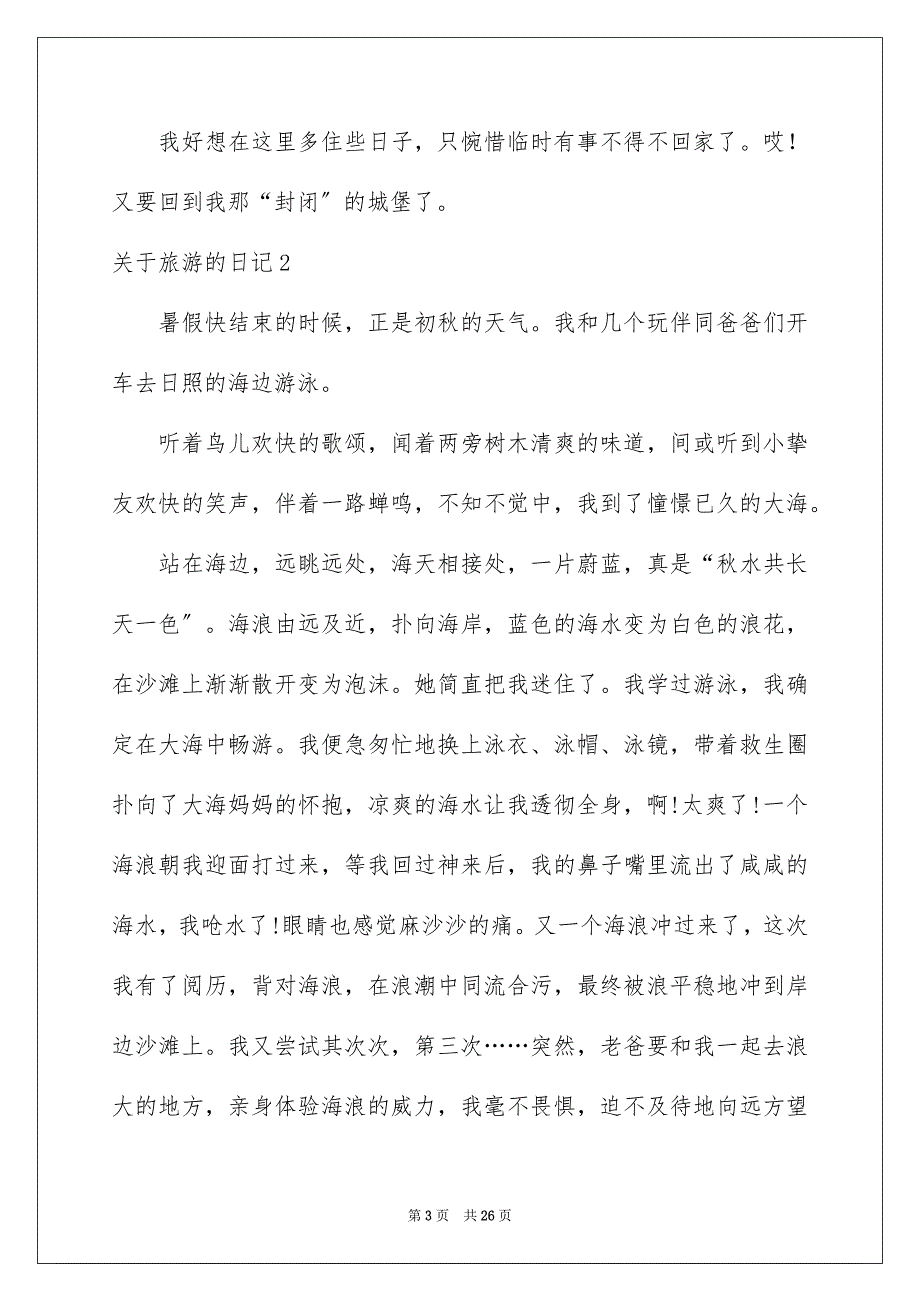 我好想在这里多住些日子，只惋惜临时有事不得不回家了。哎！
又要回到我那“封闭〞的城堡了。
关于旅游的日记 2
暑假快结束的时候，正是初秋的天气。我和几个玩伴同爸爸们开
车去日照的海边游泳。
听着鸟儿欢快的歌颂，闻着两旁树木清爽的味道，间或听到小挚
友欢快的笑声，伴着一路蝉鸣，不知不觉中，我到了憧憬已久的大海。
站在海边，远眺远处，海天相接处，一片蔚蓝，真是“秋水共长
天一色〞。海浪由远及近，扑向海岸，蓝色的海水变为白色的浪花，
在沙滩上渐渐散开变为泡沫。她简直把我迷住了。我学过游泳，我确
定在大海中畅游。我便急匆忙地换上泳衣、泳帽、泳镜，带着救生圈
扑向了大海妈妈的怀抱，凉爽的海水让我透彻全身，啊!太爽了!一个
海浪朝我迎面打过来，等我回过神来后，我的鼻子嘴里流出了咸咸的
海水，我呛水了!眼睛也感觉麻沙沙的痛。又一个海浪冲过来了，这次
我有了阅历，背对海浪，在浪潮中同流合污，最终被浪平稳地冲到岸
边沙滩上。我又尝试其次次，第三次……突然，老爸要和我一起去浪
大的地方，亲身体验海浪的威力，我毫不畏惧，迫不及待地向远方望
第 3 页 共 26 页